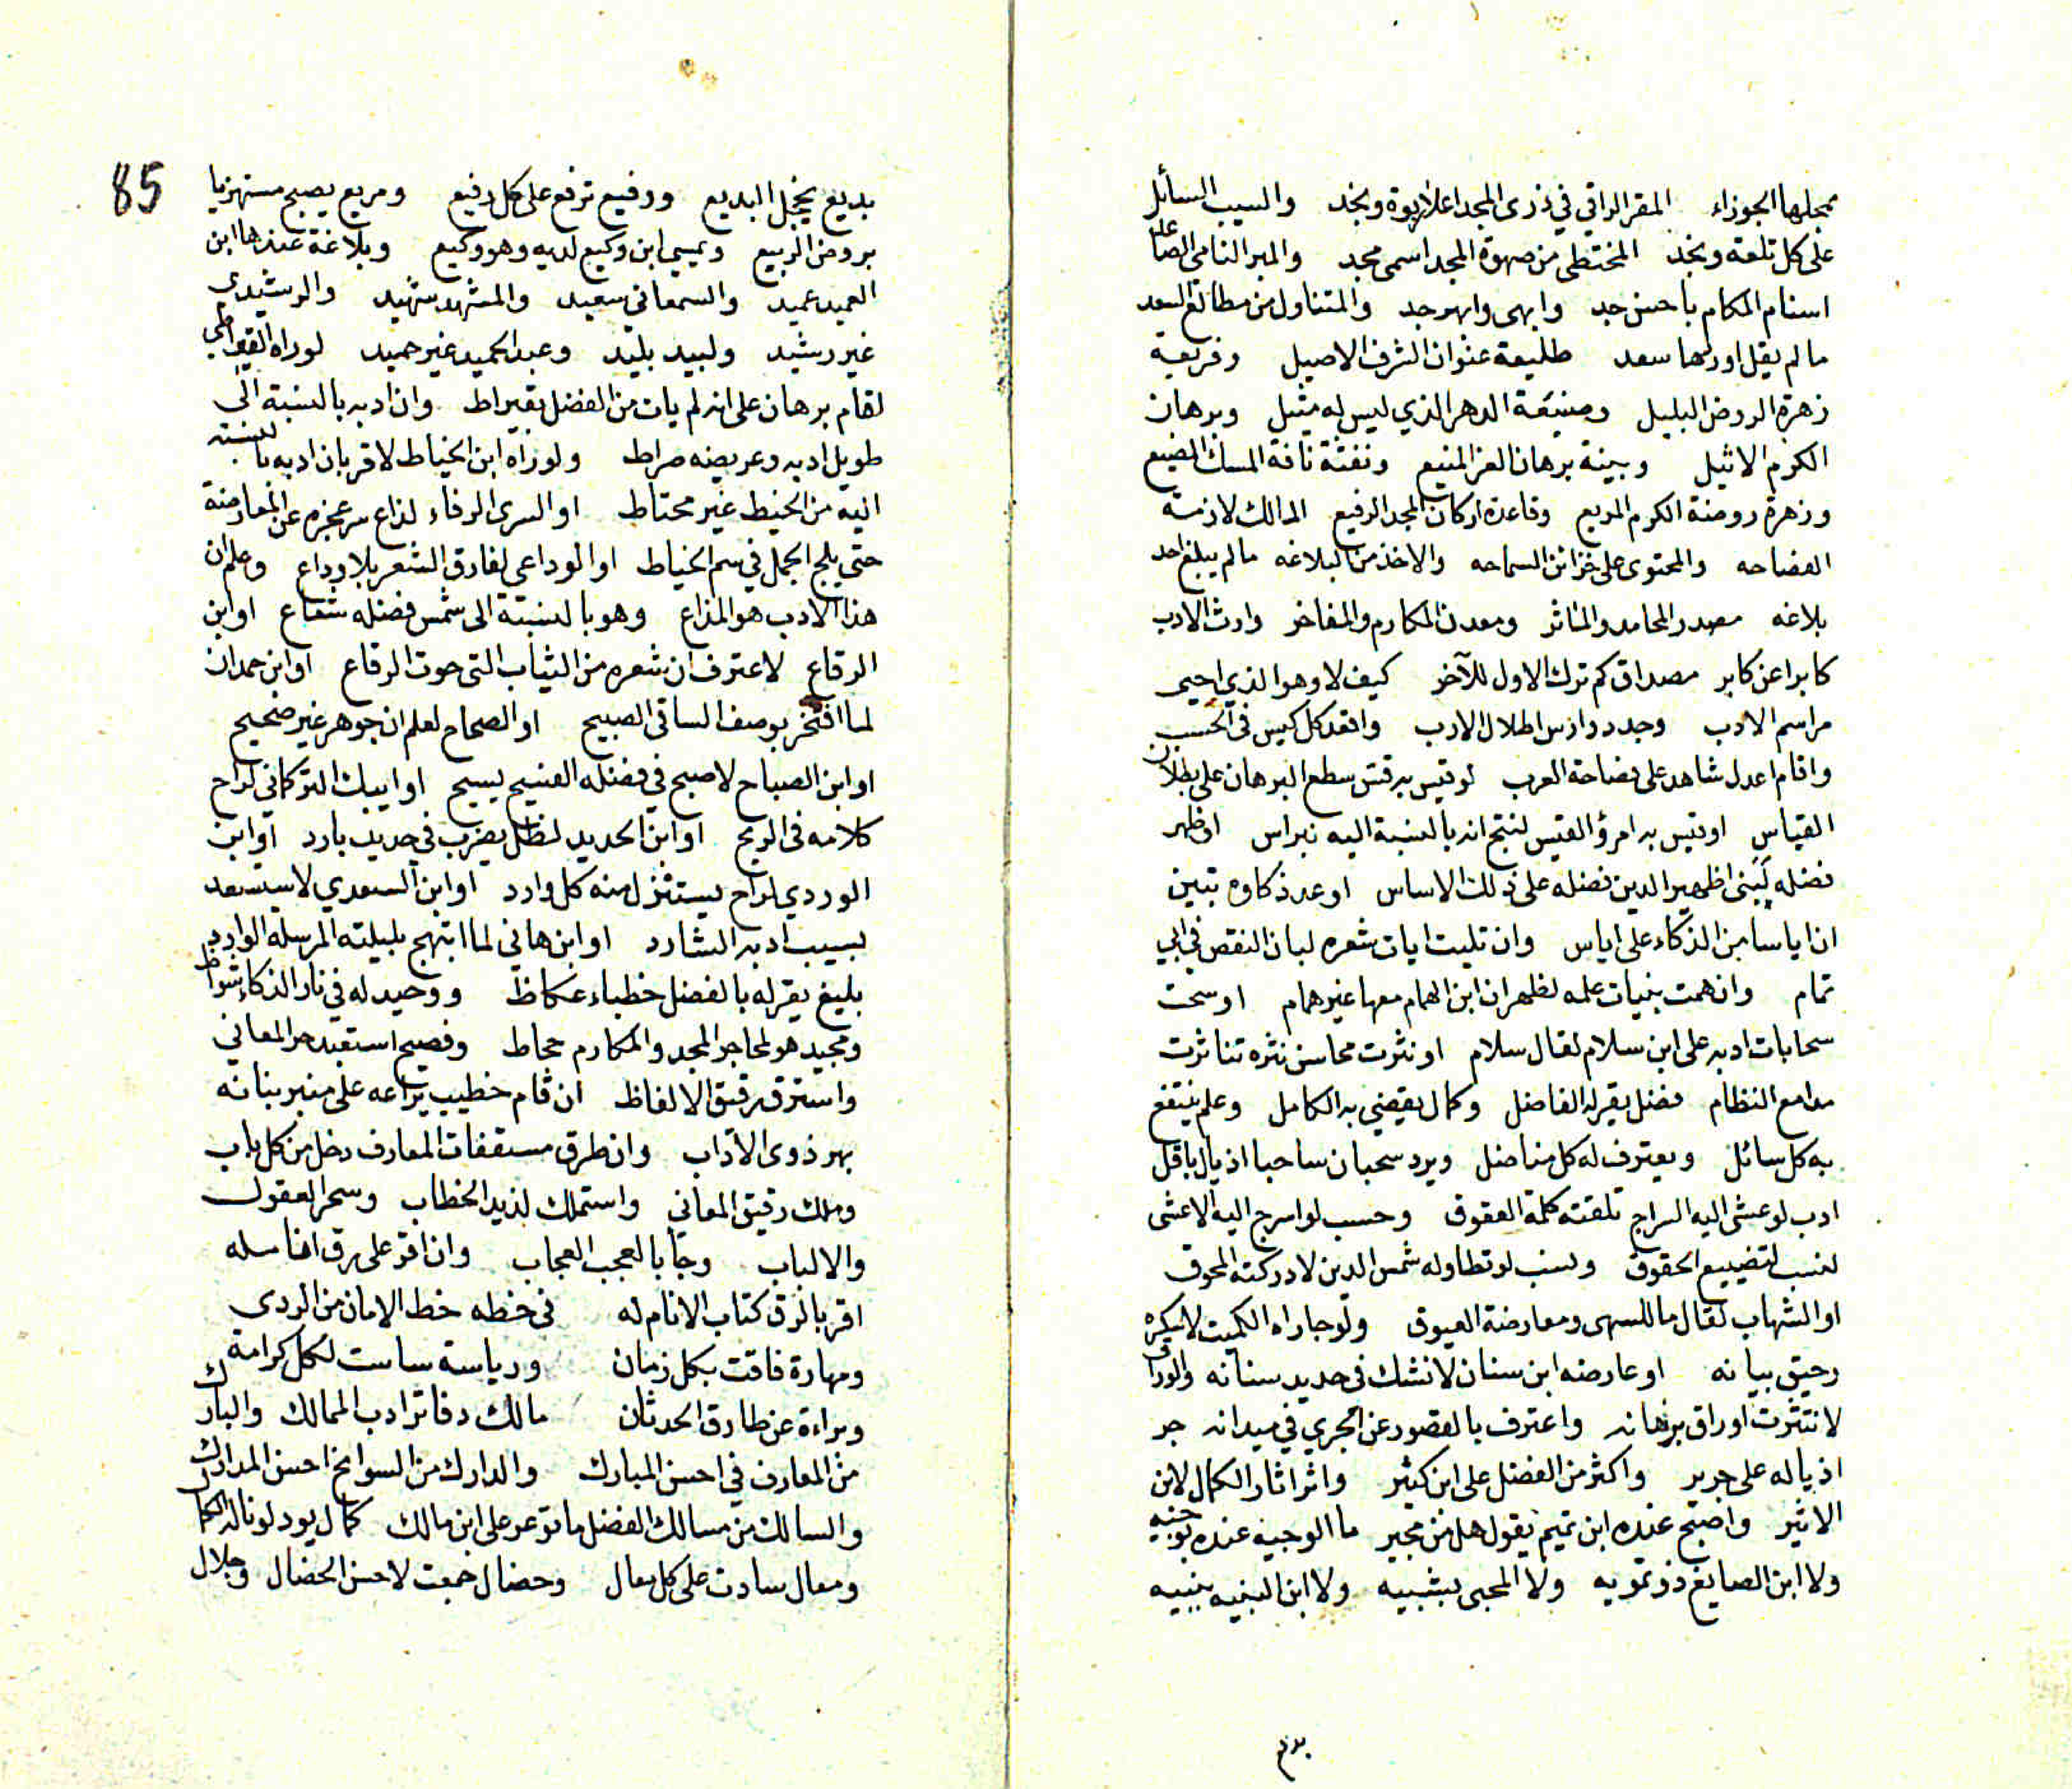 بمحلها الجوزاء المقر الراقي في ذرى المجد اعلا ربوة ونجد والسيب السائل
على كل تلعة ونجد الممتطى من صهوة المجد اسمى مجد والمبر النامي الصاعد
اسنام المكام باحسن جد وابهى وابهر جد والمتناول من مطالع السعد
ما لم يقل اوردها سعد طليعة عنوان الشرف الاصيل وفريعة
زهرة الروض البليل وصنيعة الدهر الذي ليس له مثيل وبرهان
الكرم الاثيل وبينة برهان العز المنيع ونفثة نافة المسك المضيع
وزهرة روضة الكرم المريع وقاعدة اركان المجد الرفيع المالك لازمة
الفصاحه والمحتوى على خزائن السماحه والاخذ من البلاغه ما لم يبلغ احد
بلاغه مصدر المحامد والمآثر ومعدن المكارم والمفاخر وارث الادب
كابرا عن كابر مصداق كم ترك الاول للآخر كيف لا وهو الذي احيى
مراسم الادب وجدد دوارس اطلال الادب وافقد كل كيس في الحسب
واقام اعدل شاهد على فصاحة العرب لو قيس به قس سطع البرهان على بطلان
القياس او قيس به امرؤ القيس لنتج انه بالنسبة اليه نبراس او ظهر
فضله لبنى اظهير الدين فضله على ذلك الاساس او عد ذكاوه تبين
ان اياسا من الذكاء على اياس وان تليت ايات شعره لبان النقص في ابي
تمام وان همت بنيات علمه لظهر ان ابن الهمام معها غير همام او سحت
سحابات ادبه على ابن سلام لقال سلام او نثرت محاسن نثره تناثرت
مدامع النظام فضل يقر له الفاضل وكمال يقضي به الكامل وعلم ينتفع
به كل سائل ويعترف له كل مناضل ويرد سحبان ساحبا اذيال باقل
ادب لو عشى اليه السراج تلقته كلمة العقوق وحسب لو اسرج اليه الاعشى
لنسب لتضييع الحقوق ونسب لو تطاوله شمس الدين لادركته المحوق
او الشهاب لقال ما للسهى ومعارضة العيوق ولو جاراه الكميت لاسكره
رحيق بيانه او عارضه ابن سنان لانشك في حديد سنانه والوراق
لانتثرت اوراق برهانه واعترف بالقصور عن الجري في ميدانه جر
اذياله على جرير واكثر من الفضل على ابن كثير واثر اثار الكمال لابن
الاثير واصبح عنده ابن تميم يقول هل من مجير ما الوجيه عنده بوجيه
ولا ابن الصايغ ذو تمويه ولا المحبى بشبيه ولا ابن النبيه بنبيه
بديع
85
بديع يخجل البديع ورفيع ترفع على كل رفيع ومريع يصبح مستهزيا
بروض الربيع ويمسي ابن وكيع لديه وهو وكيع وبلاغة عندها ابن
العميد عميد والسمعاني سعيد والمشهد شهيد والرشيدي
غير رشيد ولبيد بليد وعبد الحميد غير حميد لو راه القيراطي
لقام برهان على انه لم يات من الفضل بقيراط وان ادبه بالنسبة الى
طويل ادبه وعريضه صراط ولو راه ابن الخياط لاقر بان ادبه بالنسبة
اليه من الخيط غير محتاط او السرى الرفاء لذاع سر عجزه عن المعارضة
حتى يلج الجمل في سم الخياط او الوداعي لفارق الشعر بلا وداع وعلم ان
هذا الادب هو المذاع وهو بالنسبة الى شمس فضله شعاع او ابن
الرقاع لاعترف ان شعره من الثياب التى حوت الرقاع او ابن حمدان
لما افتخر بوصف الساقي الصبيح او الصحاح لعلم ان جوهر غير صحيح
او ابن الصباح لاصبح في فضله الفسيح يسيح او ايبك التركماني لراح
كلامه في الريح او ابن الحديد لظل يضرب في حديد بارد او ابن
الوردي لراح يستنزل منه كل وارد او ابن السعدي لاستسعد
بسيب ادبه الشارد او ابن هاني لما ابتهج بليلته المرسلة الوارد
بليغ يقر له بالفضل خطباء عكاظ ووحيد له في نار الذكاء شواظ
ومجيد هو لمحاجر المجد والمكارم لحاظ وفصيح استعبد حر المعاني
واسترق رقيق الالفاظ ان قام خطيب يراعه على منبر بنانه
بهر ذوى الآداب وان طرق مستقفات المعارف دخل من كل باب
وملك رقيق المعاني واستملك لذيد الخطاب وسحر العقول
والالباب وجآ بالعجب العجاب وان اقر على رق انامله
اقر بالرق كتاب الانام له في خطه خط الامان من الردى
ومهارة فاقت بكل زمان ورياسة ساست لكل كرامة
وبراءة عن طارق الحدثان مالك دفاتر ادب الممالك والبارك
من المعارف في احسن المبارك والدارك من السوانح احسن المدارك
والسالك من مسالك الفضل ما توعر على ابن مالك كمال يود لو ناله الكمال
ومعال سادت على كل معال وخصال جمعت لاحسن الخصال وجلال